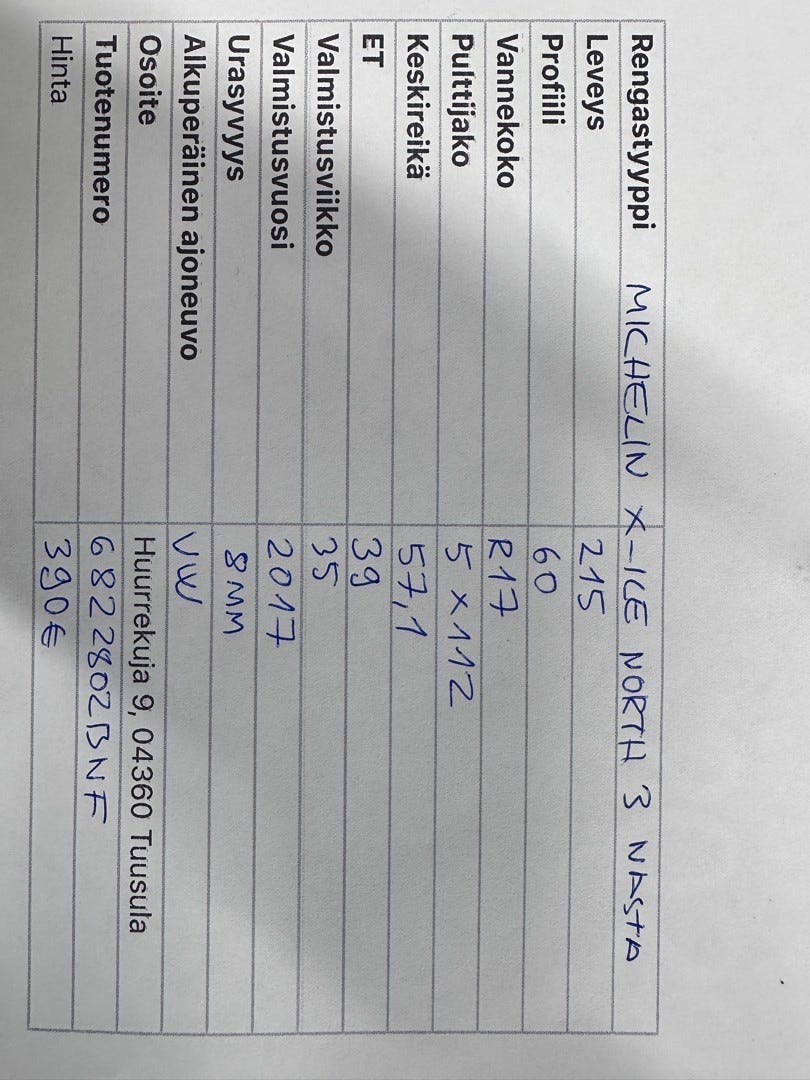 Rengastyyppi MICHELIN X-ICE NORTH 3 NASTA
Leveys 215
Profiili 60
Vannekoko R17
Pulttijako 5 X 112
Keskireikä 57,1
ET 39
Valmistusviikko 35
Valmistusvuosi 2017
Urasyvyys 8MM
Alkuperäinen ajoneuvo VW
Osoite Huurrekuja 9, 04360 Tuusula
Tuotenumero 6822802BNF
Hinta 390€